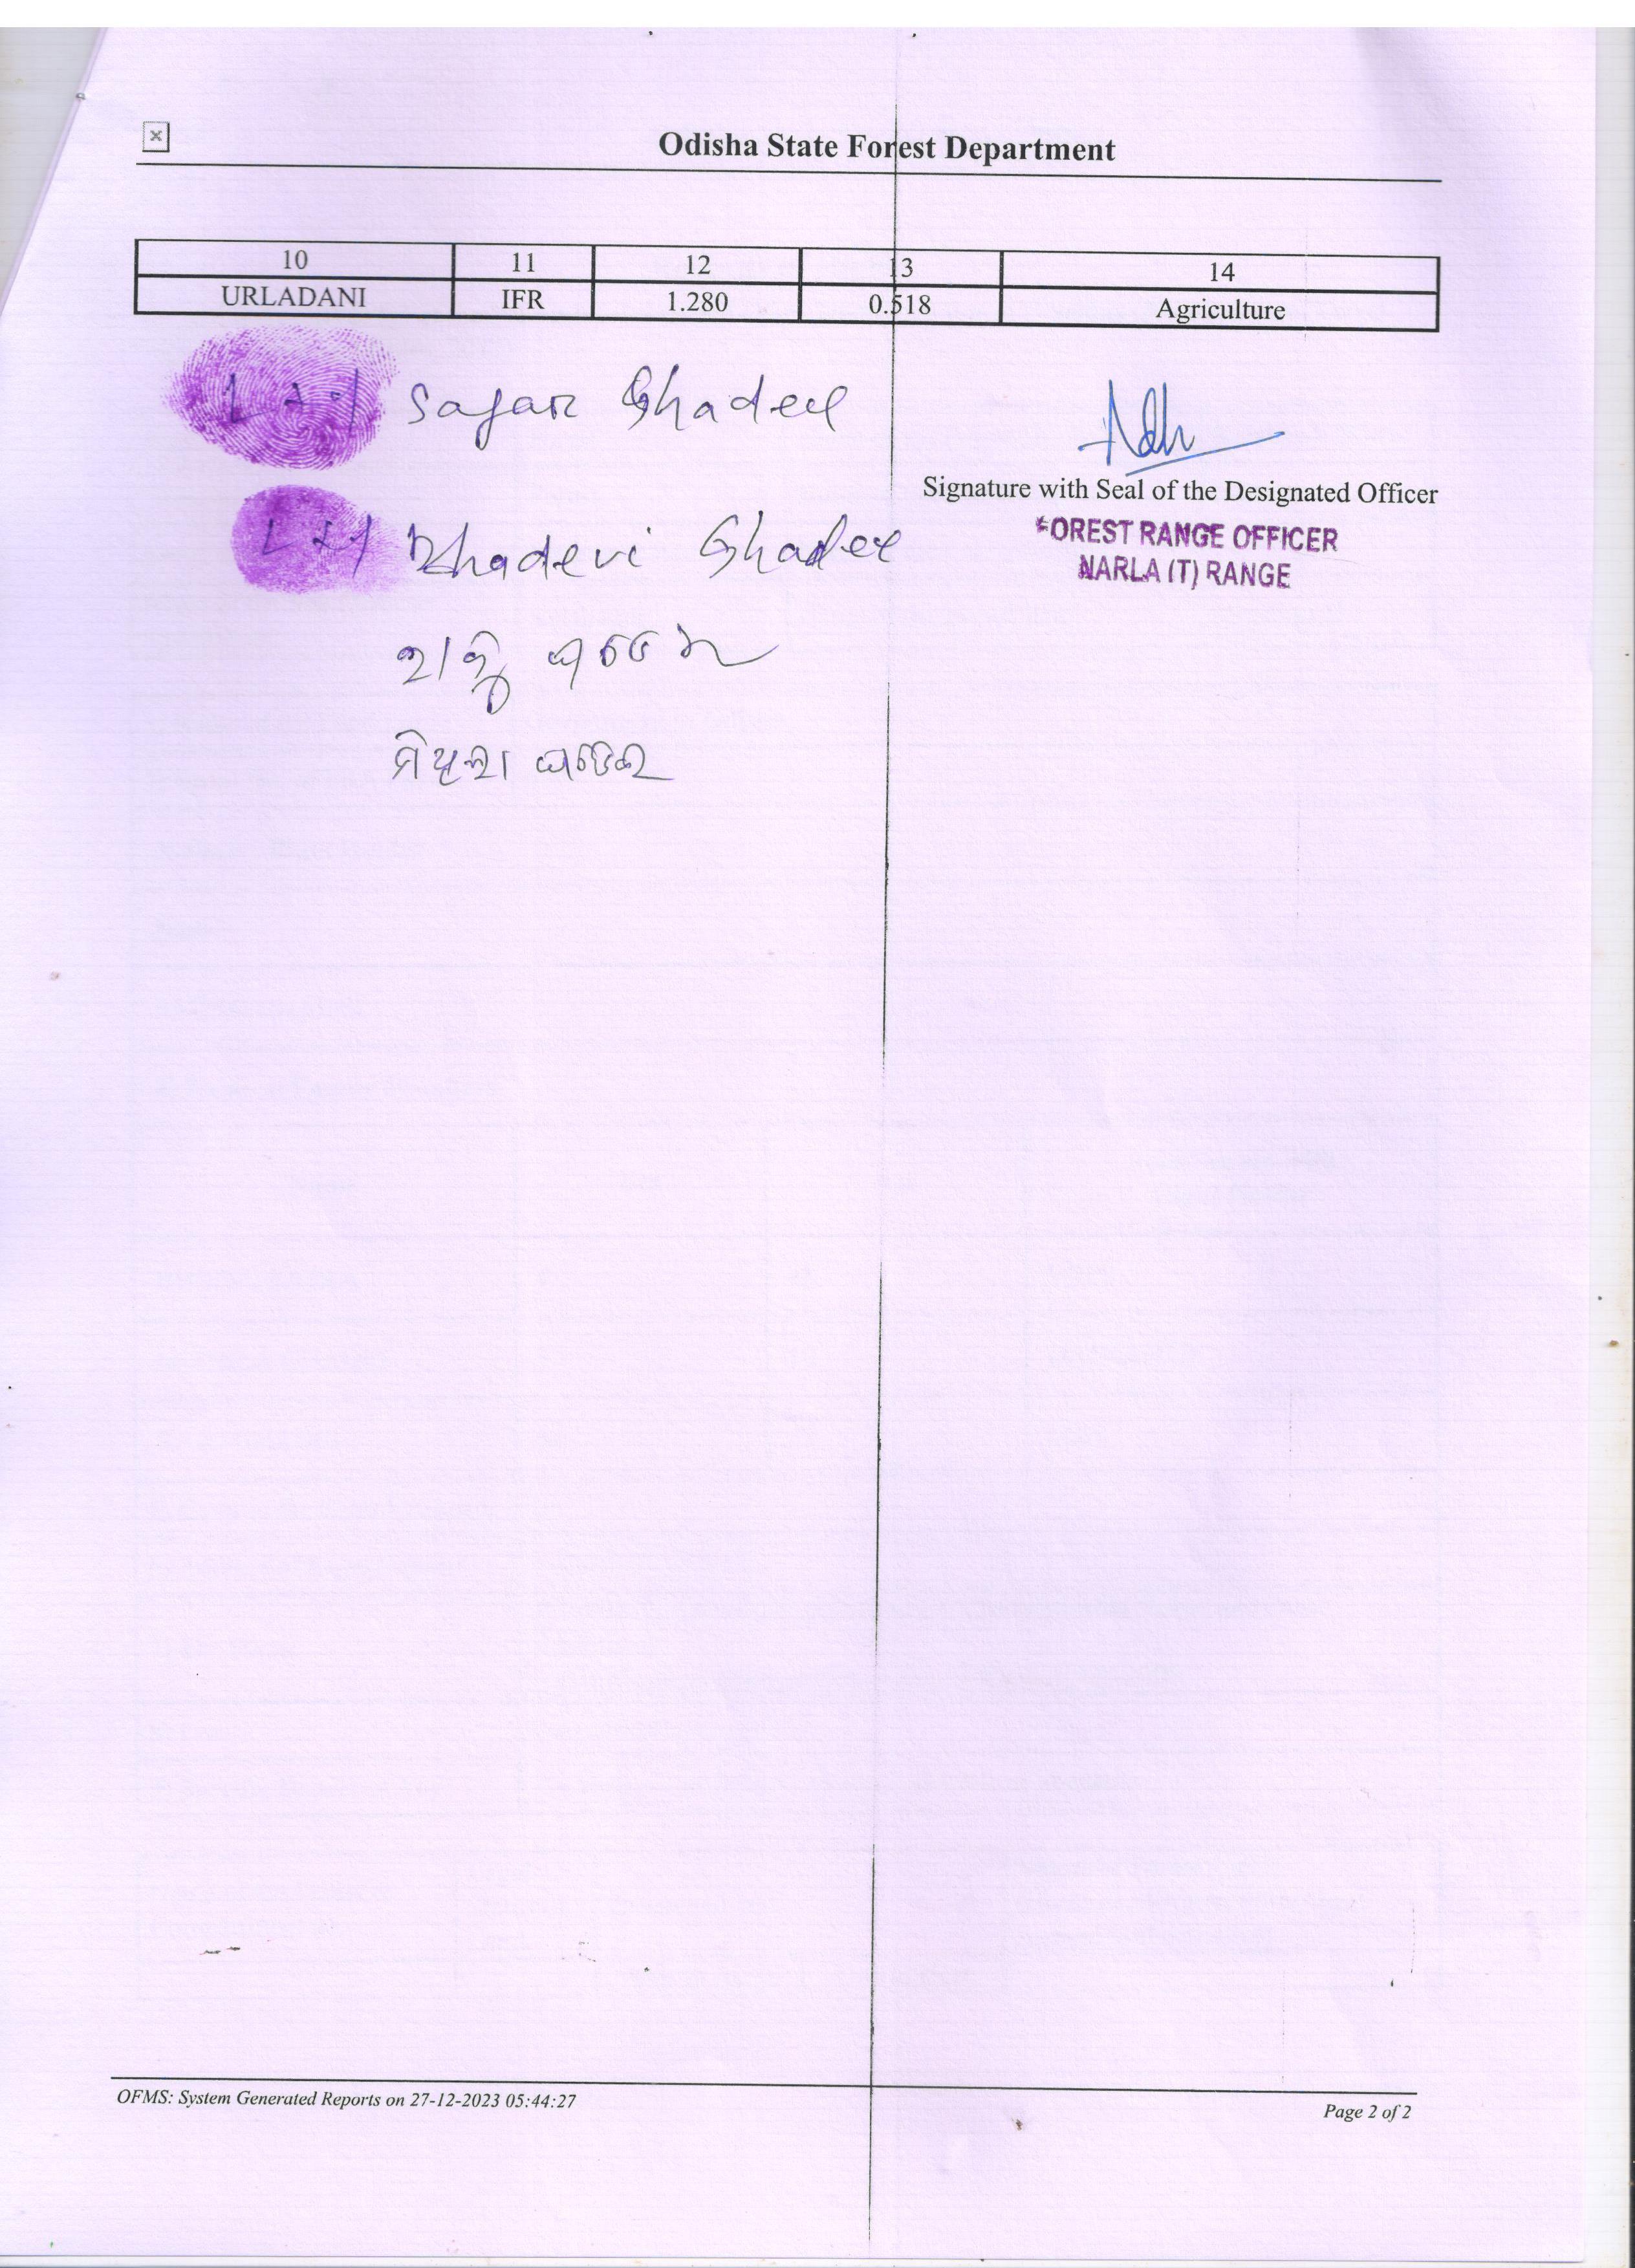 Odisha State Forest Department
10 11 12 13 14
URLADANI IFR 1.280 0.518 Agriculture
Sagar Ghadei
Signature with Seal of the Designated Officer
FOREST RANGE OFFICER
NARLA (T) RANGE
OFMS: System Generated Reports on 27-12-2023 05:44:27
Page 2 of 2